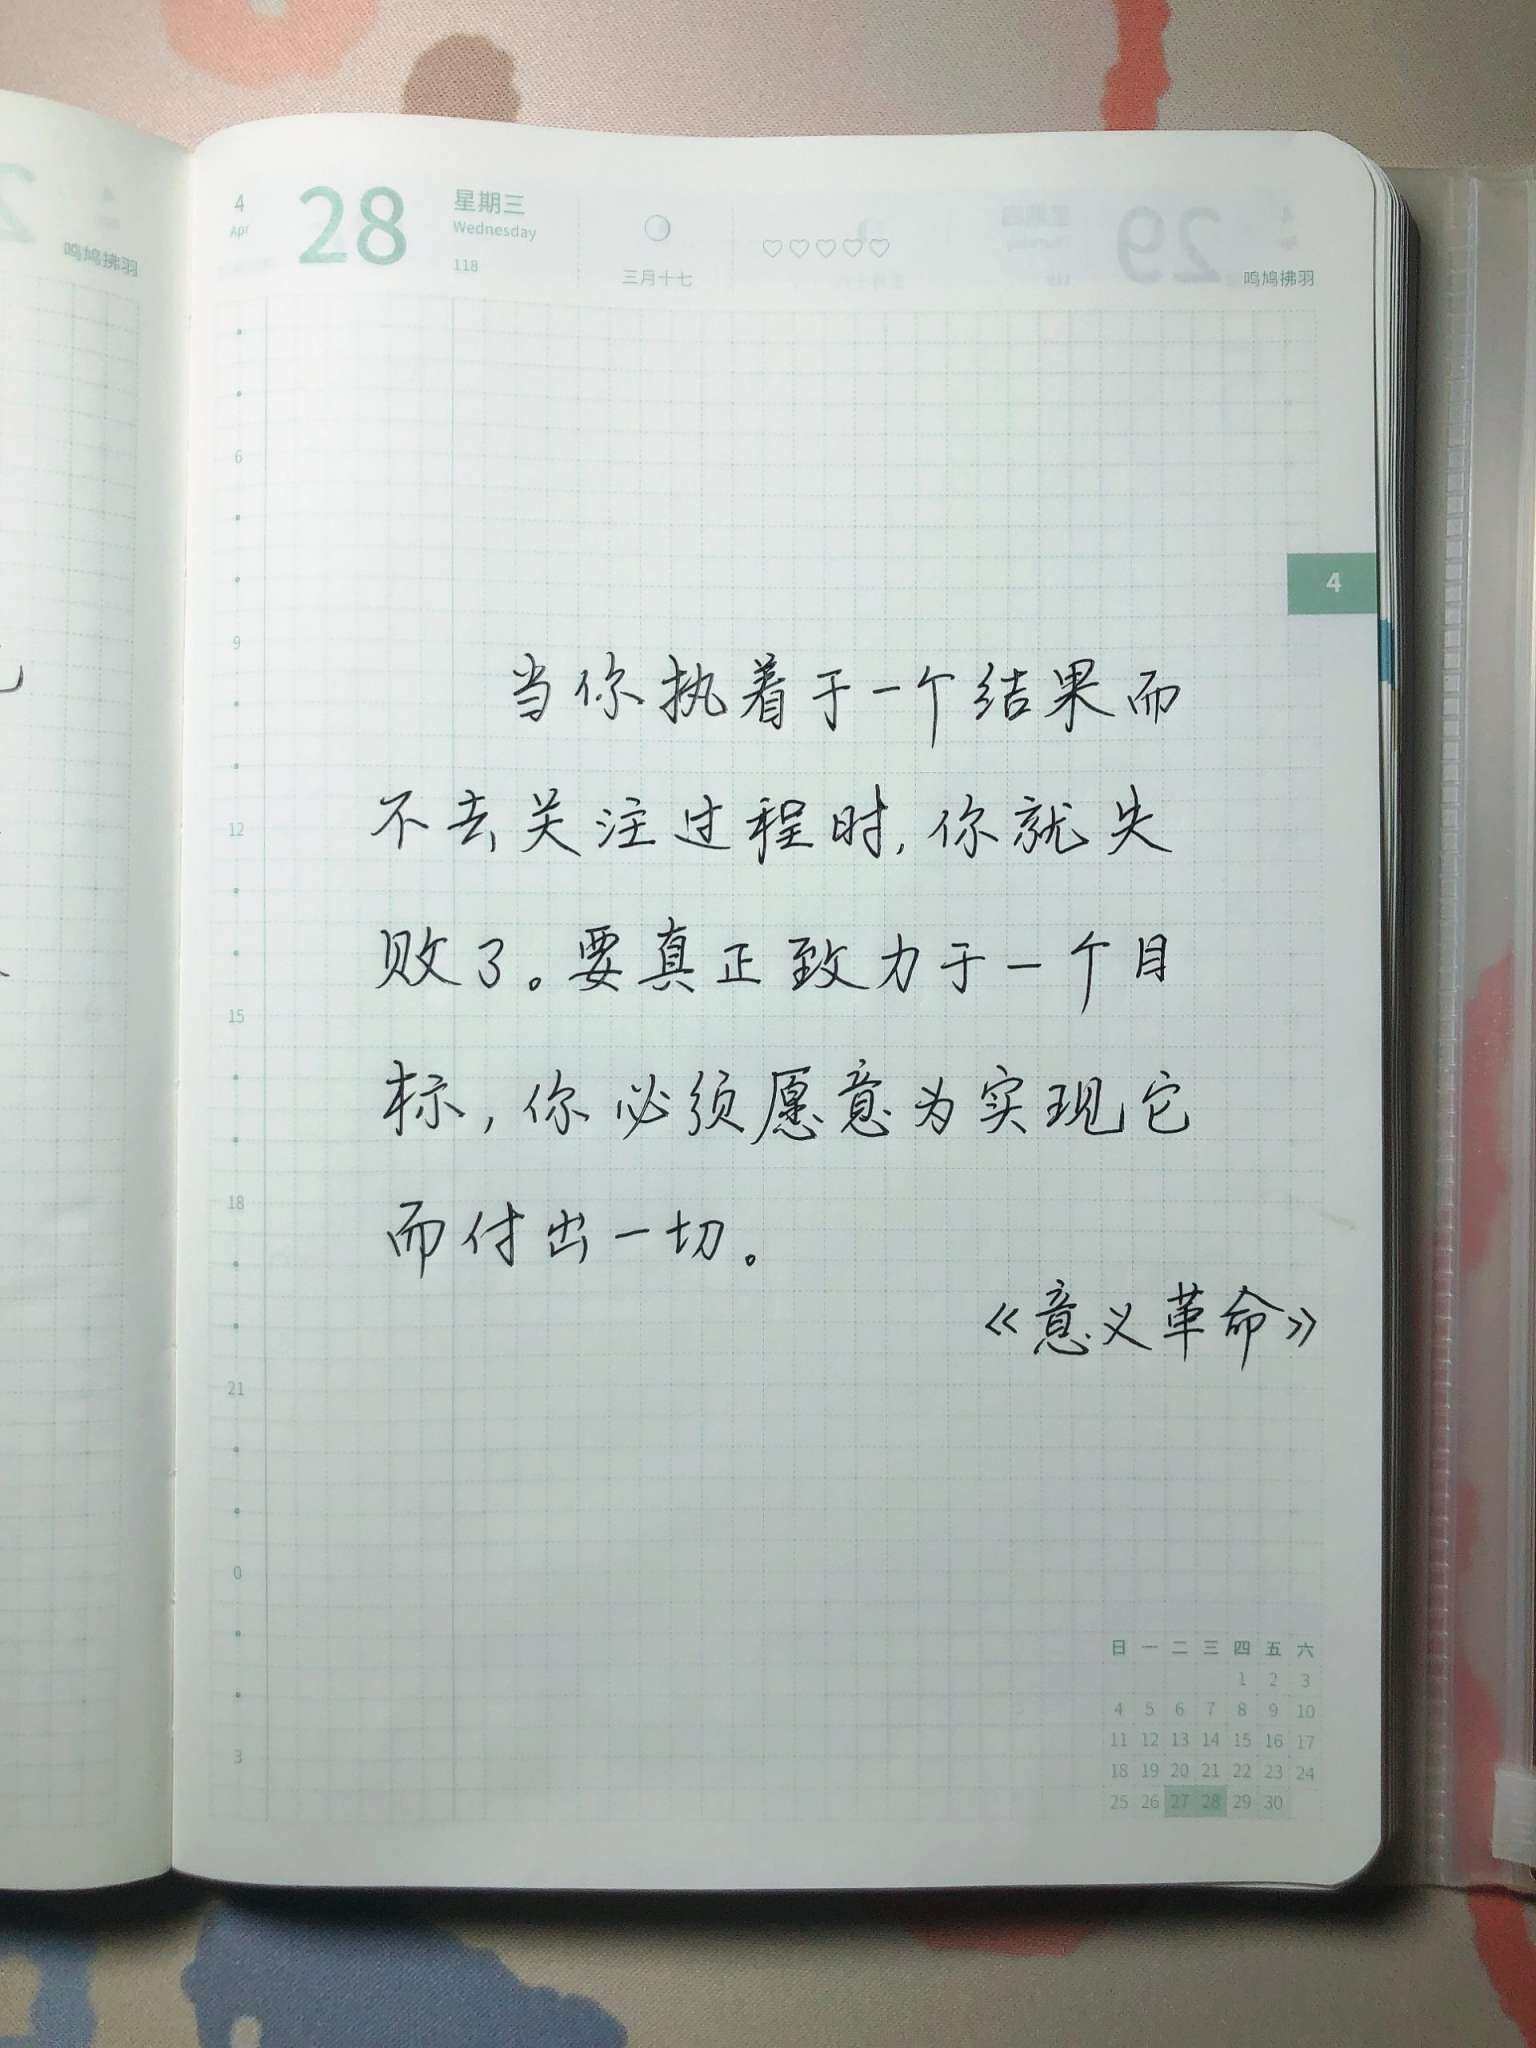 4
Apr
28
星期三
Wednesday
118
三月十七
鸣鸠拂羽
鸣鸠拂羽
4
6
9
12
15
18
21
0
3
当你执着于一个结果而
不去关注过程时,你就失
败了。要真正致力于一个目
标,你必须愿意为实现它
而付出一切。
《意义革命》
日 一 二 三 四 五 六
1 2 3
4 5 6 7 8 9 10
11 12 13 14 15 16 17
18 19 20 21 22 23 24
25 26 27 28 29 30